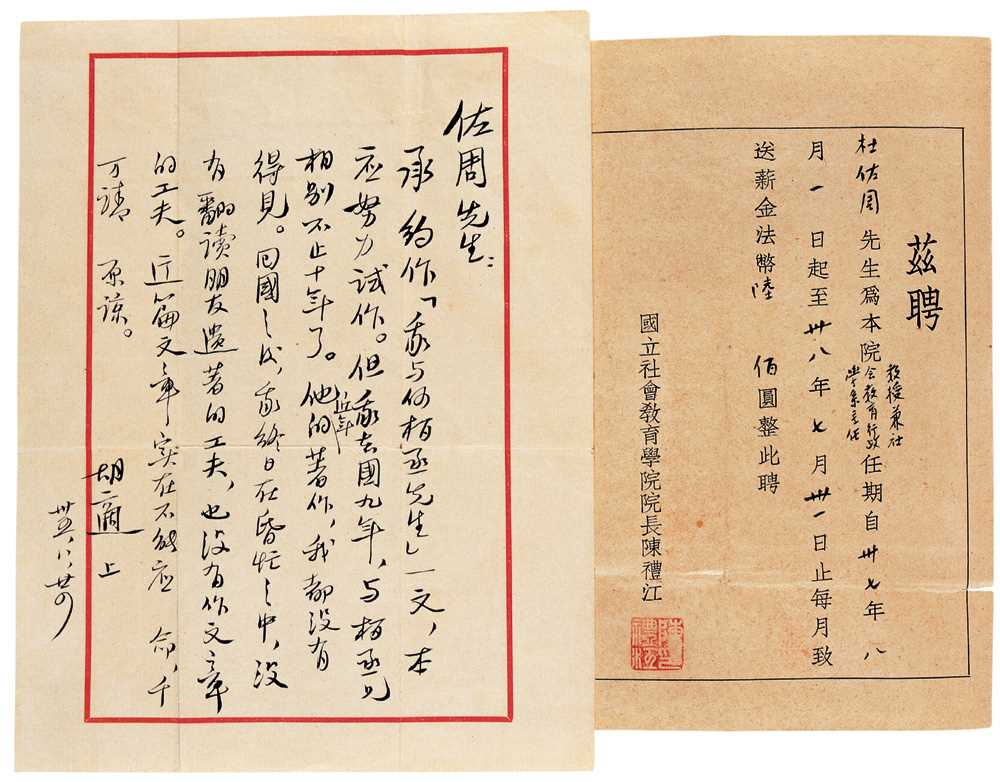 佐周先生：
承 約作「我与何柏丞先生」一文，本
应努力试作。但我去國九年，与柏丞兄
相别不止十年了。他的近年著作，我都没有
得見。回國之後，我終日在昏忙之中，没
有翻读朋友遗著的工夫，也没有作文章
的工夫。这篇文章实在不能应 命，千
万請 原諒。
胡適 上
卅五，八，廿四
茲聘
杜佐周先生爲本院教授兼社會教育行政學系主任任期自卅七年八
月一日起至卅八年七月卅一日止每月致
送薪金法幣陸佰圓整此聘
國立社會教育學院院長陳禮江